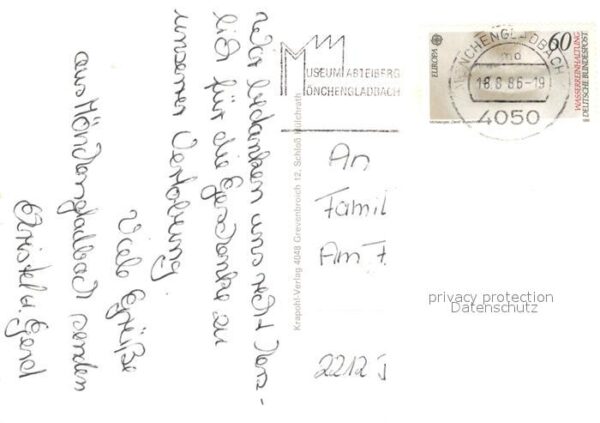 Wir bedanken uns recht herz-
lich für die Geschenke zu
unserer Verlobung.
Viele Grüße
aus Mönchengladbach senden
Christel u. Gerd
Krapohl-Verlag 4048 Grevenbroich 12, Schloß Hülchrath
MUSEUM ABTEIBERG
MÖNCHENGLADBACH
MÖNCHENGLADBACH
md
18.8.86-19
4050
EUROPA
60
WASSERREINHALTUNG
DEUTSCHE BUNDESPOST
An
Famil
Am F
2212 J
privacy protection
Datenschutz